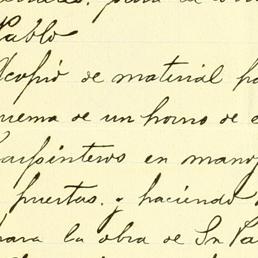 para la
Pablo
Acopio de material pa
quema de un horno de c
Carpinteros en mang
puertas. y haciendo
para la obra de Sn Pa